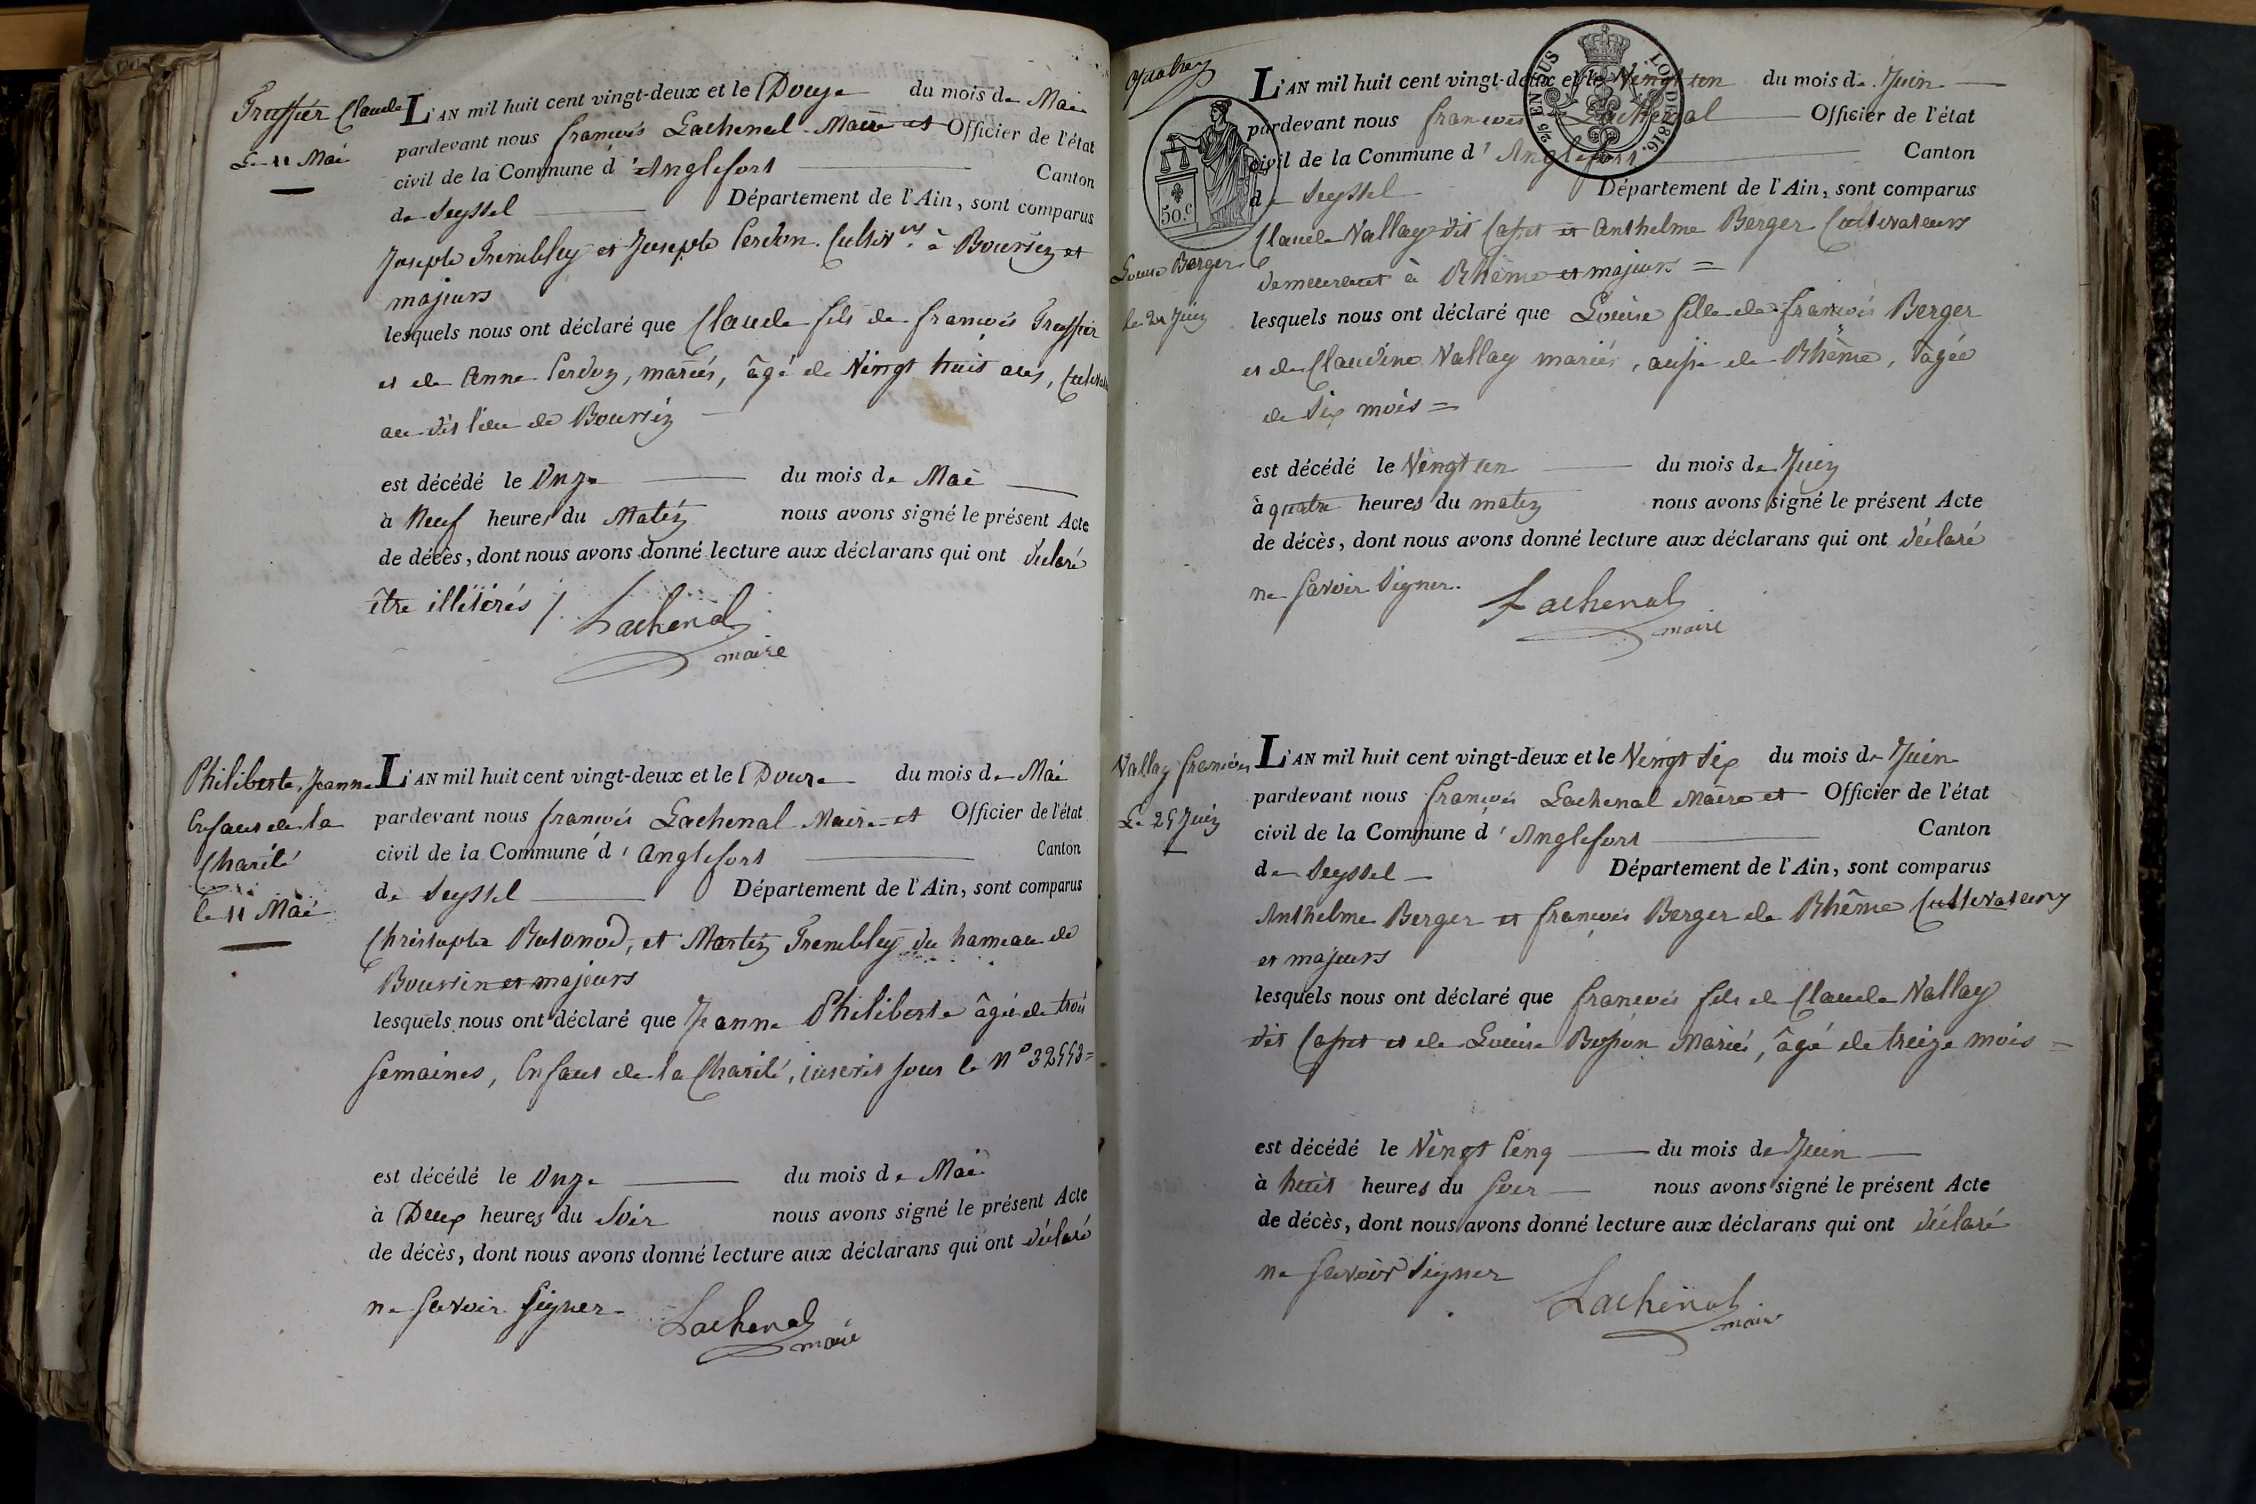 Truffier Claude
Le 11 Mai
L'AN mil huit cent vingt-deux et le Douze du mois de Mai
pardevant nous françois Lachenal Maire et Officier de l'état
civil de la Commune d'Anglefort Canton
de Seyssel Département de l'Ain, sont comparus
Joseph Trembley et Joseph Cerdon Cultiv.rs à Boursin et
majeurs
lesquels nous ont déclaré que Claude fils de françois Truffier
et de Anne Cerdon, mariés, âgé de Vingt huit ans,
au dit lieu de Boursin
est décédé le Onze du mois de Mai
à Neuf heures du Matin nous avons signé le présent Acte
de décès, dont nous avons donné lecture aux déclarans qui ont déclaré
être illitérés
Lachenal
maire
Philiberte, Jeanne
Enfant de la
Charité
le 11 Mai
L'AN mil huit cent vingt-deux et le Douze du mois de Mai
pardevant nous françois Lachenal Maire et Officier de l'état
civil de la Commune d'Anglefort Canton
de Seyssel Département de l'Ain, sont comparus
Christophe et Martin Trembley du hameau de
Boursin et majeurs
lesquels nous ont déclaré que Jeanne Philiberte âgée de trois
semaines, Enfant de la Charité, inscrit sous le N°
est décédé le Onze du mois de Mai
à Deux heures du Soir nous avons signé le présent Acte
de décès, dont nous avons donné lecture aux déclarans qui ont déclaré
ne savoir signer
Lachenal
maire
50.c
2/5 EN SUS
LOI DE 1816.
Louise Berger
le 21 Juin
L'AN mil huit cent vingt-deux et le Vingt un du mois de Juin
pardevant nous françois Lachenal Officier de l'état
civil de la Commune d'Anglefort Canton
de Seyssel Département de l'Ain, sont comparus
Claude Vallay dit Capet et Anthelme Berger Cultivateurs
demeurant à Rhême et majeurs =
lesquels nous ont déclaré que Louise fille de françois Berger
et de Claudine Vallay mariés, aussi de Rhême, âgée
de Six mois =
est décédé le Vingt un du mois de Juin
à quatre heures du matin nous avons signé le présent Acte
de décès, dont nous avons donné lecture aux déclarans qui ont déclaré
ne savoir Signer.
Lachenal
maire
Vallay françois
Le 25 Juin
L'AN mil huit cent vingt-deux et le Vingt Six du mois de Juin
pardevant nous françois Lachenal Maire et Officier de l'état
civil de la Commune d'Anglefort Canton
de Seyssel Département de l'Ain, sont comparus
Anthelme Berger et françois Berger de Rhême Cultivateurs
et majeurs
lesquels nous ont déclaré que françois fils de Claude Vallay
dit Capet et de Louise Mariés, âgé de treize mois =
est décédé le Vingt Cinq du mois de Juin
à huit heures du Soir nous avons signé le présent Acte
de décès, dont nous avons donné lecture aux déclarans qui ont déclaré
ne savoir Signer
Lachenal
maire